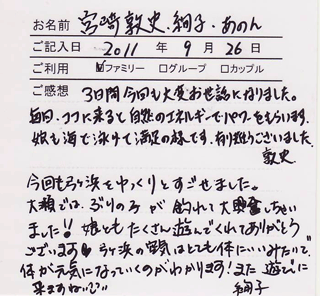 お名前 宮崎敦史・絢子・あのん
ご記入日 2011年 9月 26日
ご利用 ☑ファミリー □グループ □カップル
ご感想 3日間今回も大変お世話になりました。
毎回、ココに来ると自然のエネルギーでパワーをもらいます。
娘も海で泳げて満足の様です。有り難うございました。
敦史
今回も弓ヶ浜をゆっくりとすごせました。
大瀬では、ぶりの子が釣れて大興奮しちゃい
ました!! 娘ともたくさん遊んでくれてありがとう
ございます♥ 弓ヶ浜の空気はとても体にいいみたいで、
体が元気になっていくのがわかります! また遊びに
来ますね
絢子